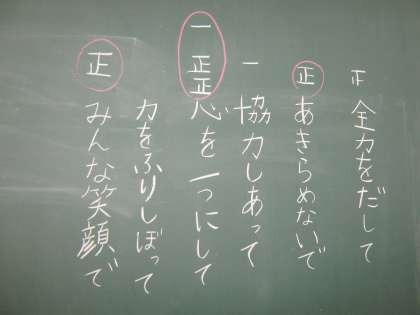 正 全力をだして
正 あきらめないで
一 協力しあって
一正正 心を一つにして
力をふりしぼって
正 みんな笑顔で